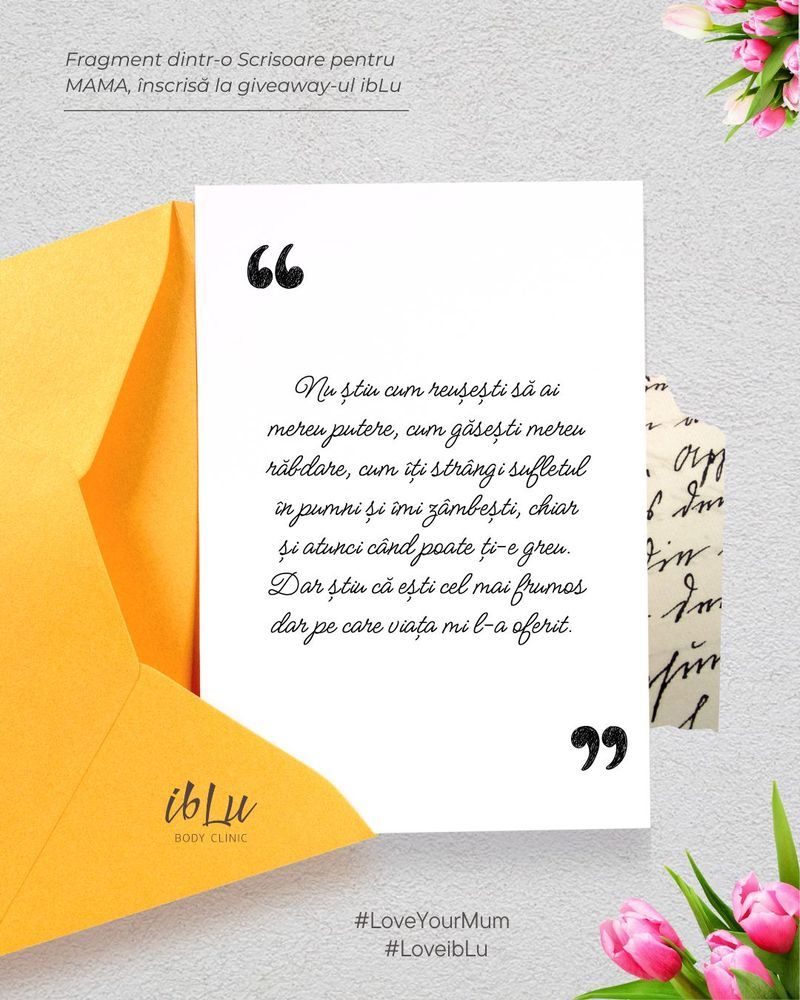 Fragment dintr-o Scrisoare pentru
MAMA, înscrisă la giveaway-ul ibLu
Nu știu cum reușești să ai
mereu putere, cum găsești mereu
răbdare, cum îți strângi sufletul
în pumni și îmi zâmbești, chiar
și atunci când poate ți-e greu.
Dar știu că ești cel mai frumos
dar pe care viața mi l-a oferit.
ibLu
BODY CLINIC
#LoveYourMum
#LoveibLu